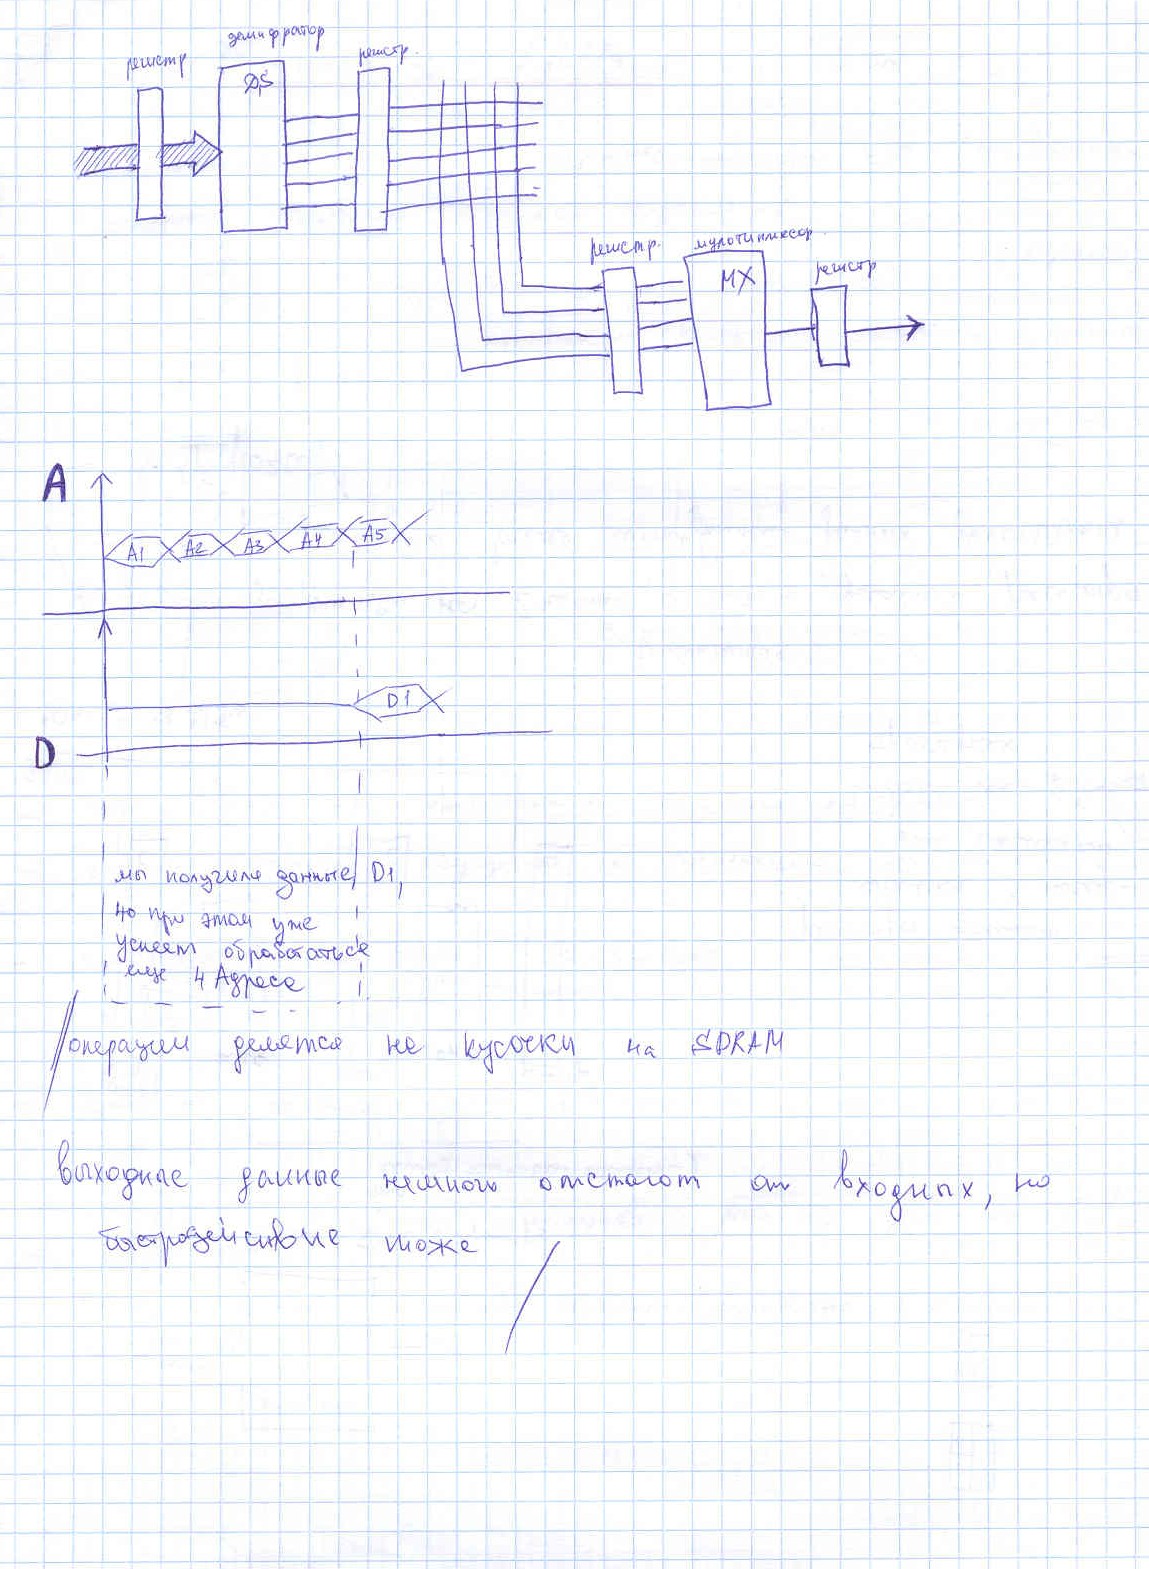 дешифратор
регистр
регистр.
DS
регистр.
мультиплексор.
регистр
MX
A
A1 A2 A3 A4 A5
D1
D
мы получили данные D1,
но при этом уже
успеет обработаться
еще 4 Адреса
операции делятся не кусочки на SDRAM
выходные данные немного отстают от входных, но
быстродействие тоже